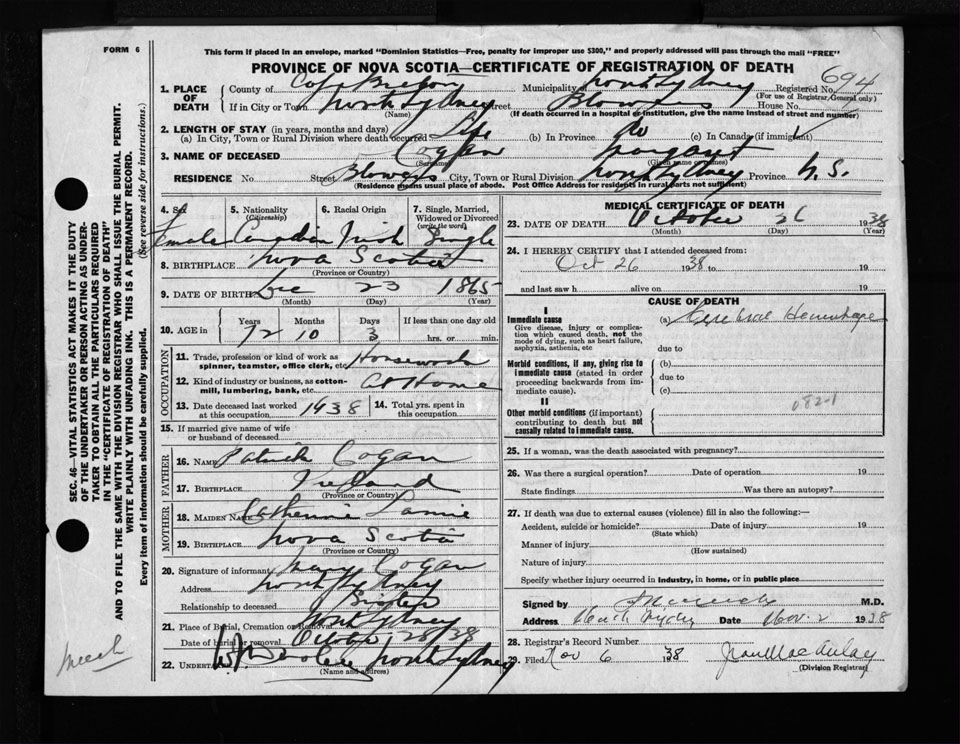 FORM 6
This form if placed in an envelope, marked "Dominion Statistics—Free, penalty for improper use $300," and properly addressed will pass through the mail "FREE"
PROVINCE OF NOVA SCOTIA—CERTIFICATE OF REGISTRATION OF DEATH
694
1. PLACE OF DEATH
County of Cape Breton Municipality of North Sydney Registered No.
(For use of Registrar General only)
If in City or Town North Sydney Street Blowers House No.
(Name) (If death occurred in a hospital or institution, give name instead of street and number)
2. LENGTH OF STAY (in years, months and days)
(a) In City, Town or Rural Division where death occurred Life (b) In Province do (c) In Canada (if immigrant)
3. NAME OF DECEASED Cogan Margaret
(Surname) (Given name or names)
RESIDENCE No. Street Blowers City, Town or Rural Division North Sydney Province N. S.
(Residence means usual place of abode. Post Office Address for residents in rural parts not sufficient)
4. Sex Female
5. Nationality (Citizenship) Canadian
6. Racial Origin Irish
7. Single, Married, Widowed or Divorced (write the word) Single
8. BIRTHPLACE Nova Scotia
(Province or Country)
9. DATE OF BIRTH Dec 23 1865
(Month) (Day) (Year)
10. AGE in Years Months Days If less than one day old
72 10 3 hrs. or min.
OCCUPATION
11. Trade, profession or kind of work as spinner, teamster, office clerk, etc. Housework
12. Kind of industry or business, as cotton-mill, lumbering, bank, etc. At Home
13. Date deceased last worked at this occupation 1938
14. Total yrs. spent in this occupation
15. If married give name of wife or husband of deceased
FATHER
16. NAME Patrick Cogan
17. BIRTHPLACE Ireland
(Province or Country)
MOTHER
18. MAIDEN NAME Catherine
19. BIRTHPLACE Nova Scotia
(Province or Country)
20. Signature of informant Mary Cogan
Address North Sydney
Relationship to deceased
21. Place of Burial, Cremation or Removal North Sydney
Date of burial or removal October 28/38
22. UNDERTAKER North Sydney
(Name and address)
MEDICAL CERTIFICATE OF DEATH
23. DATE OF DEATH October 26 1938
(Month) (Day) (Year)
24. I HEREBY CERTIFY that I attended deceased from:
Oct 26 1938 to 19
and last saw h alive on 19
CAUSE OF DEATH
I
Immediate cause
Give disease, injury or complication which caused death, not the mode of dying, such as heart failure, asphyxia, asthenia, etc
(a) Cerebral Hemorrhage
due to
Morbid conditions, if any, giving rise to immediate cause (stated in order proceeding backwards from immediate cause).
(b)
due to
(c)
II
Other morbid conditions (if important) contributing to death but not causally related to immediate cause.
082-1
25. If a woman, was the death associated with pregnancy?
26. Was there a surgical operation? Date of operation 19
State findings Was there an autopsy?
27. If death was due to external causes (violence) fill in also the following:—
Accident, suicide or homicide? Date of injury 19
(State which)
Manner of injury
(How sustained)
Nature of injury
Specify whether injury occurred in industry, in home, or in public place
Signed by M.D.
Address North Sydney Date Nov. 2 1938
28. Registrar's Record Number
29. Filed Nov 6 38
(Division Registrar)
SEC. 46—VITAL STATISTICS ACT MAKES IT THE DUTY
OF THE UNDERTAKER OR PERSON ACTING AS UNDERTAKER TO OBTAIN ALL THE PARTICULARS REQUIRED
IN THE "CERTIFICATE OF REGISTRATION OF DEATH"
AND TO FILE THE SAME WITH THE DIVISION REGISTRAR WHO SHALL ISSUE THE BURIAL PERMIT.
WRITE PLAINLY WITH UNFADING INK. THIS IS A PERMANENT RECORD.
Every item of information should be carefully supplied. (See reverse side for instructions.)